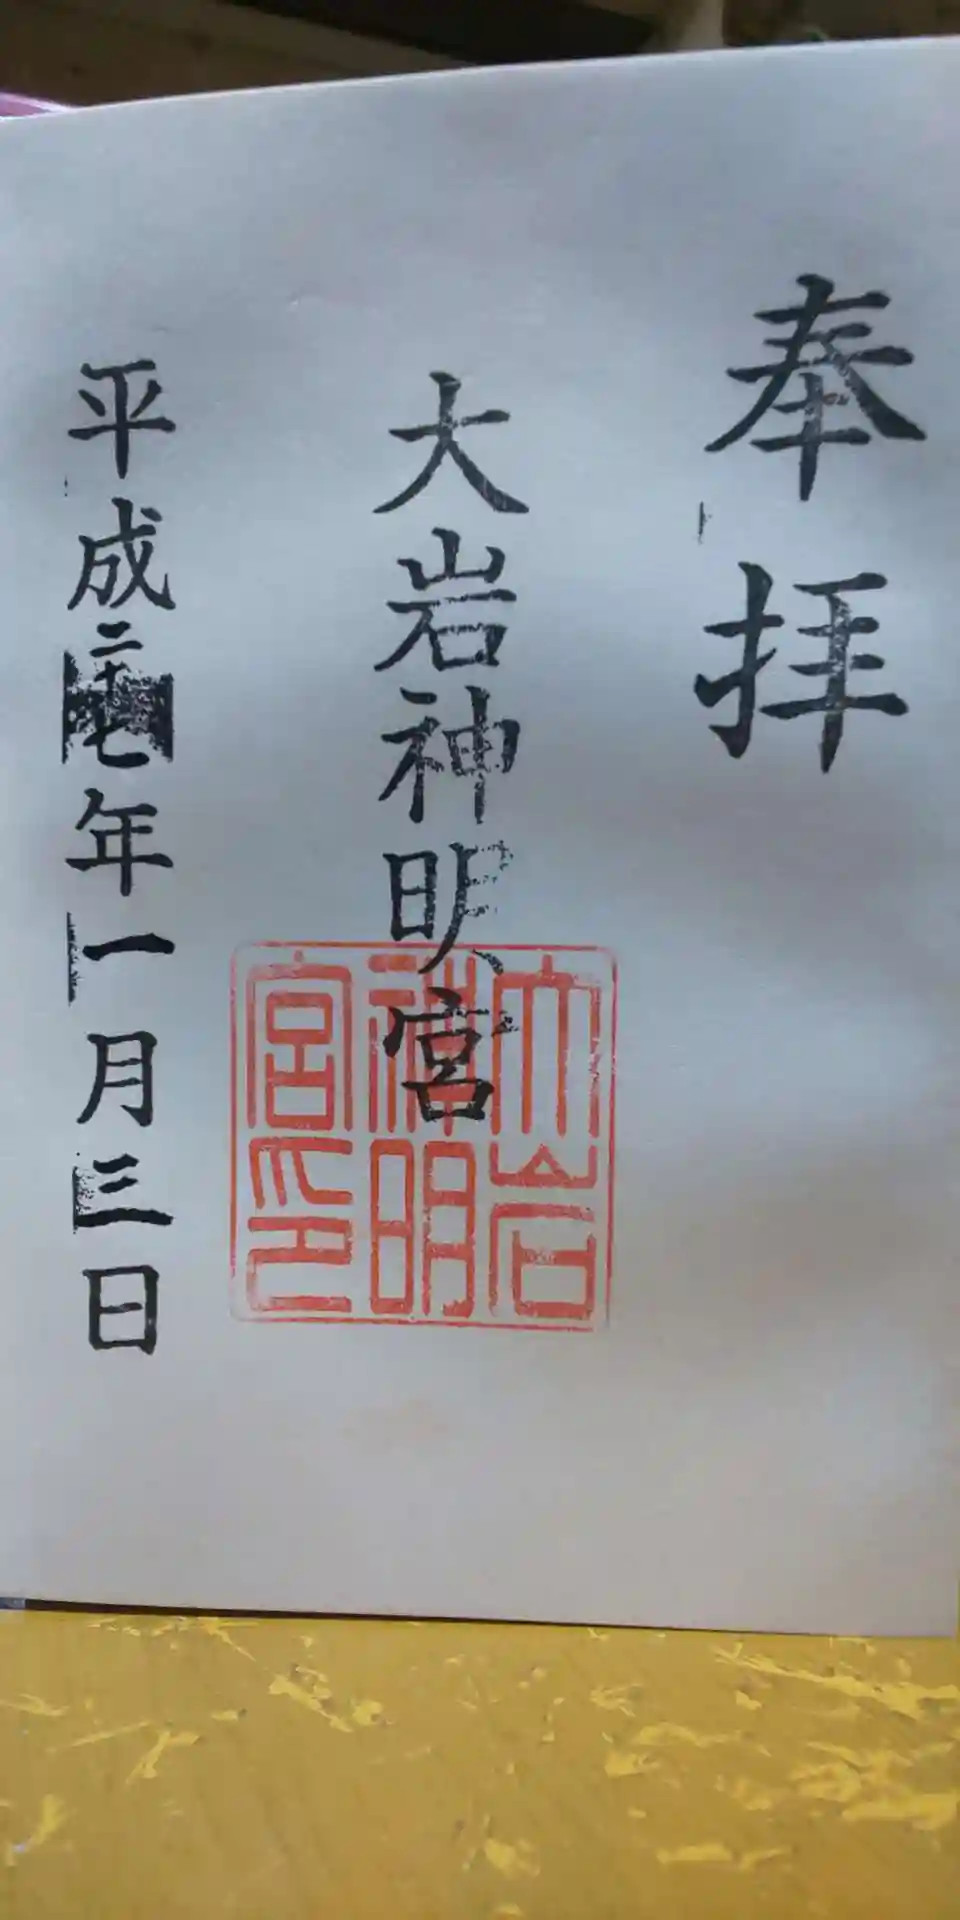 奉拝
大岩神明宮
大岩
神明
宮印
平成二十七年一月三日